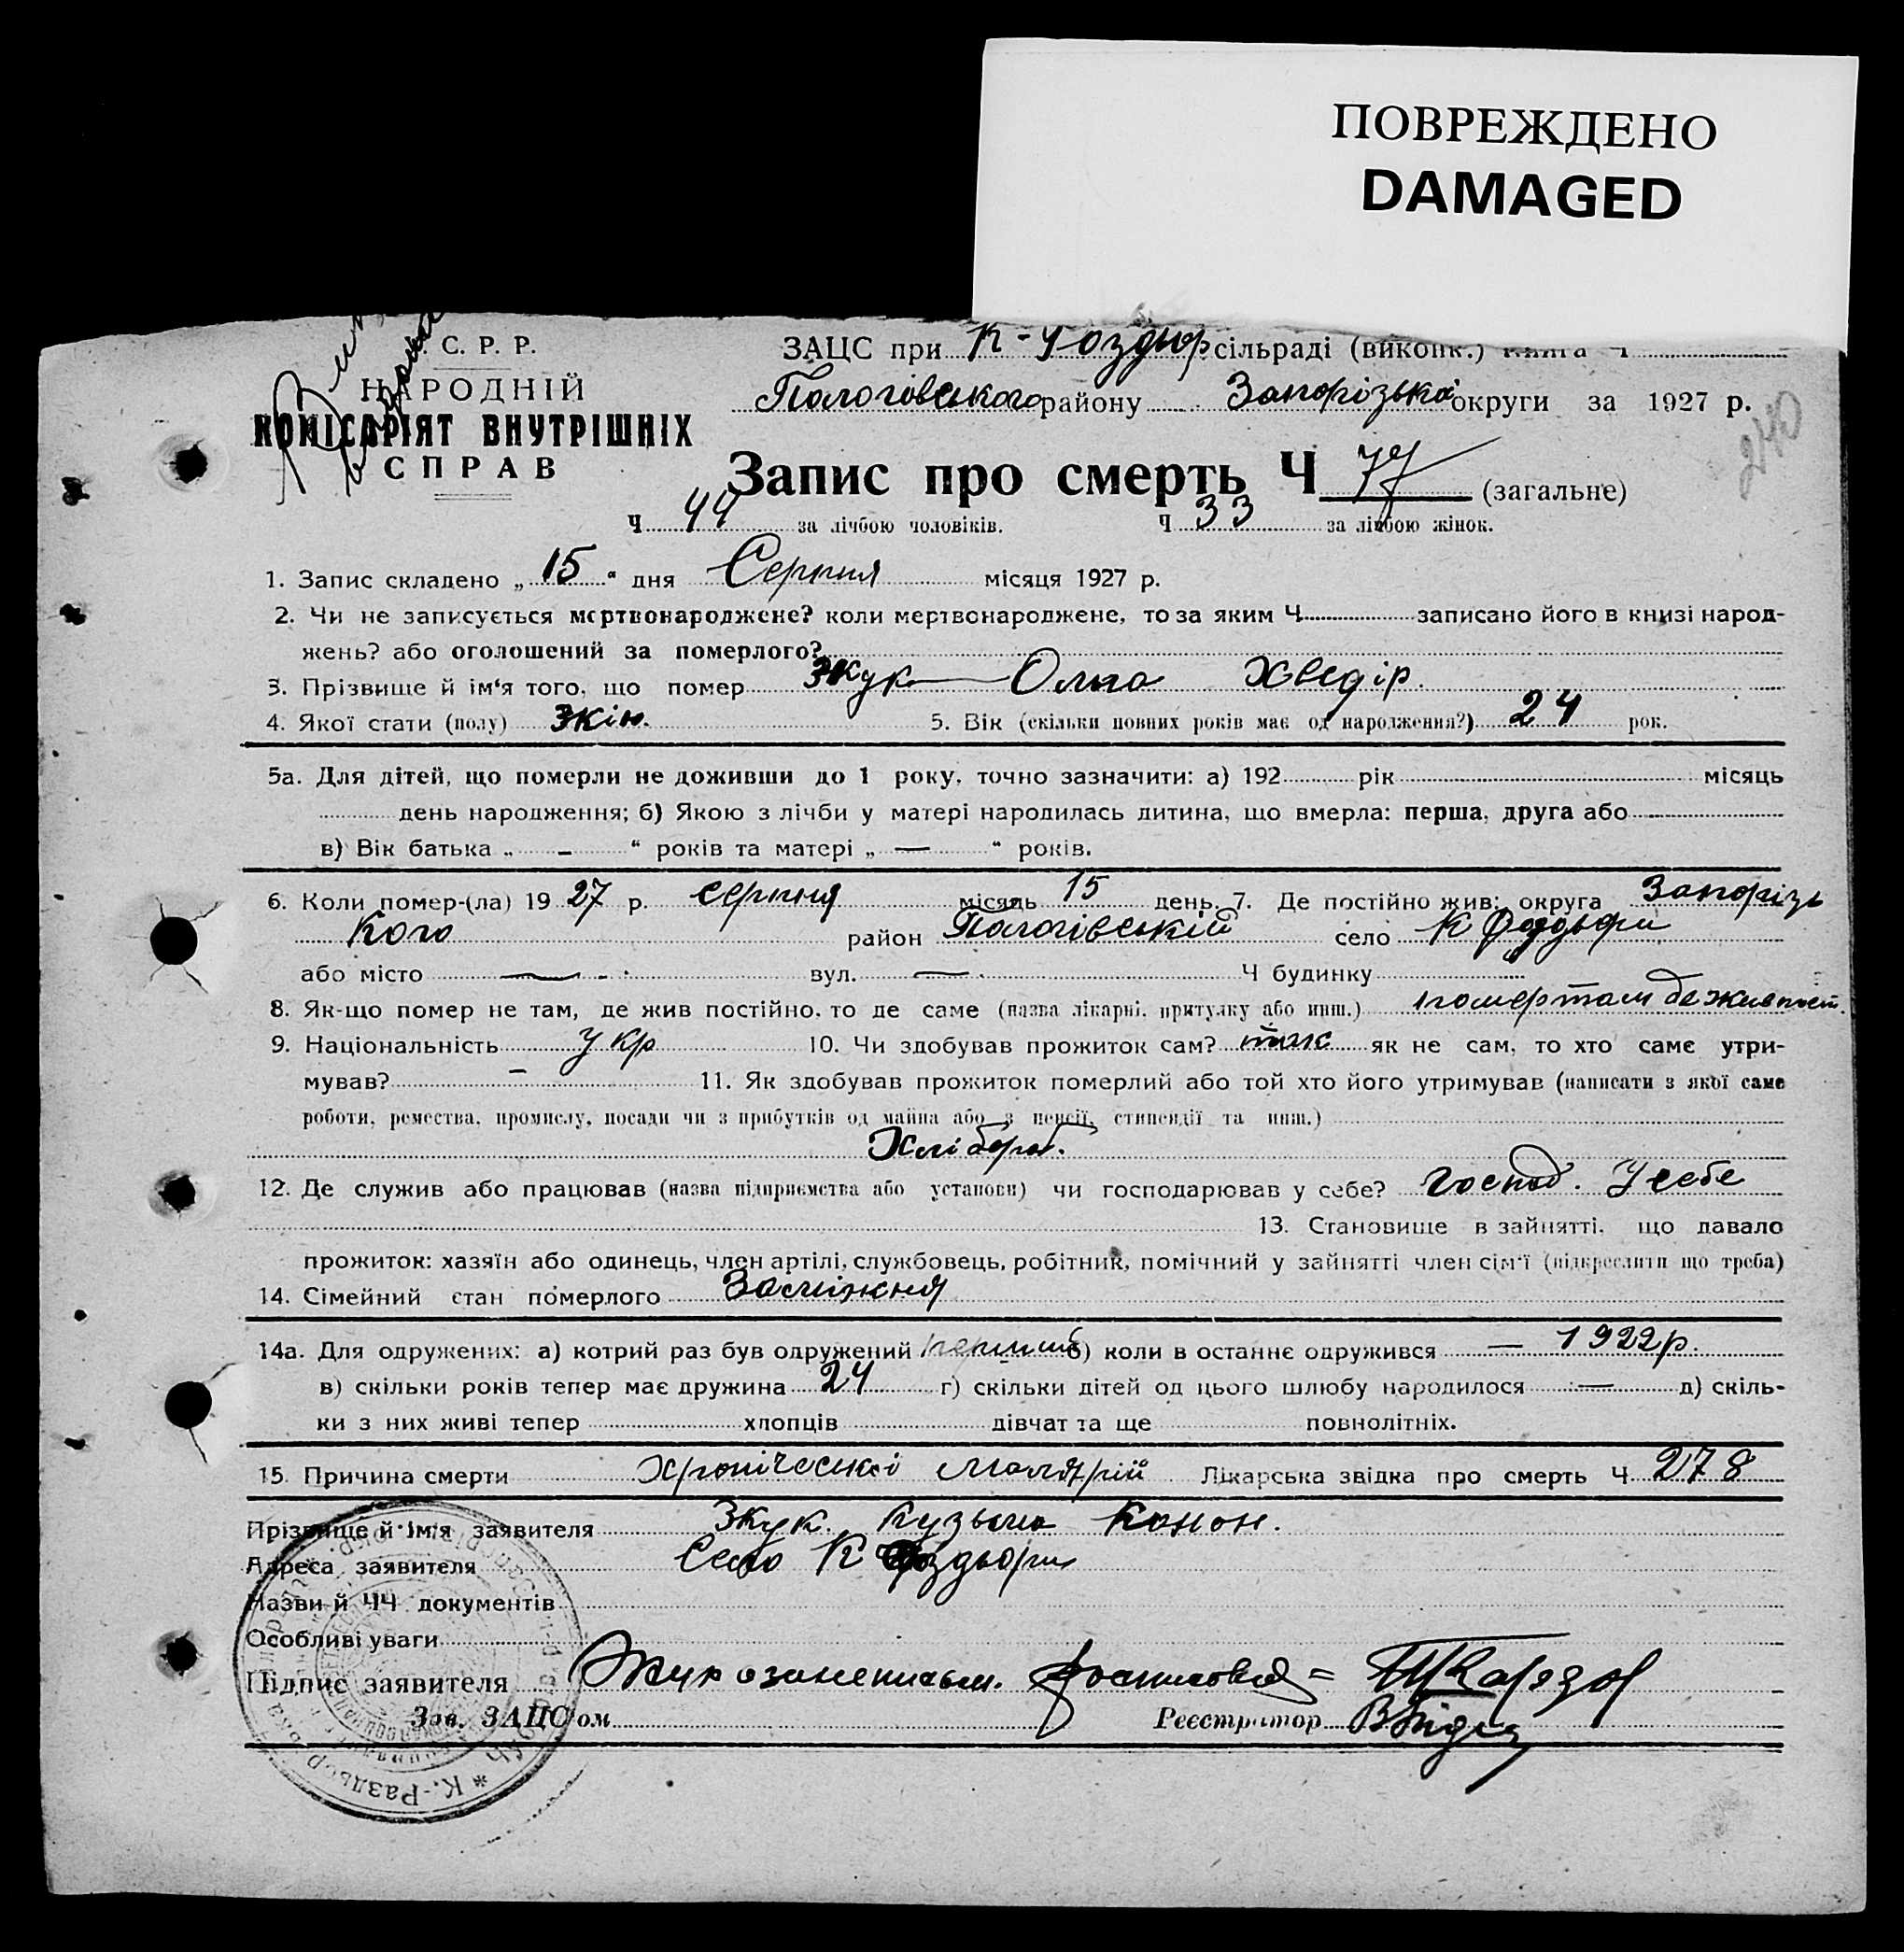 ПОВРЕЖДЕНО
DAMAGED
С. Р. Р.
НАРОДНІЙ
КОМІСАРІЯТ ВНУТРІШНІХ
СПРАВ
ЗАЦС при сільраді (виконк.) книга Ч
Пологівського району Запорізька округи за 1927 р.
240
Запис про смерть Ч 77 (загальне)
Ч 44 за лічбою чоловіків. Ч 33 за лічбою жінок.
1. Запис складено „ 15 “ дня Серпня місяця 1927 р.
2. Чи не записується мертвонароджене? коли мертвонароджене, то за яким Ч записано його в книзі народ-
жень? або оголошений за померлого?
3. Прізвище й ім'я того, що помер Жук Ольга Хведір.
4. Якої стати (полу) Жін. 5. Вік (скільки повних років має од народження?) 24 рок.
5а. Для дітей, що померли не доживши до 1 року, точно зазначити: а) 192 рік місяць
день народження; б) Якою з лічби у матері народилась дитина, що вмерла: перша, друга або
в) Вік батька „ – “ років та матері „ — “ років.
6. Коли помер-(ла) 1927 р. серпня місяць 15 день. 7. Де постійно жив: округа Запорізь
кого район Пологівській село К
або місто — вул. — Ч будинку
8. Як-що помер не там, де жив постійно, то де саме (назва лікарні, притулку або инш.) помер там де жив пост.
9. Національність Укр 10. Чи здобував прожиток сам? так як не сам, то хто саме утри-
мував? – 11. Як здобував прожиток померлий або той хто його утримував (написати з якої саме
роботи, ремества, промислу, посади чи з прибутків од майна або з пенсії, стипендії та инш.)
Хлібороб.
12. Де служив або працював (назва підприємства або установи) чи господарював у себе? Господ. У себе
13. Становище в зайнятті, що давало
прожиток: хазяїн або одинець, член артілі, службовець, робітник, помічний у зайнятті член сім'ї (підкреслити що треба)
14. Сімейний стан померлого Заміжня
14а. Для одружених: а) котрий раз був одружений перший б) коли в останнє одружився — 1922 р.
в) скільки років тепер має дружина 24 г) скільки дітей од цього шлюбу народилося — д) скіль-
ки з них живі тепер хлопців дівчат та ще повнолітніх.
15. Причина смерти Хронічеської Малярій Лікарська звідка про смерть Ч 278
Прізвище й ім'я заявителя Жук Кузьма Конон.
Адреса заявителя Село К
Назви й ЧЧ документів
Особливі уваги
Підпис заявителя Жук
Зав. ЗАЦС'ом Реєстратор
К.-Раздьор